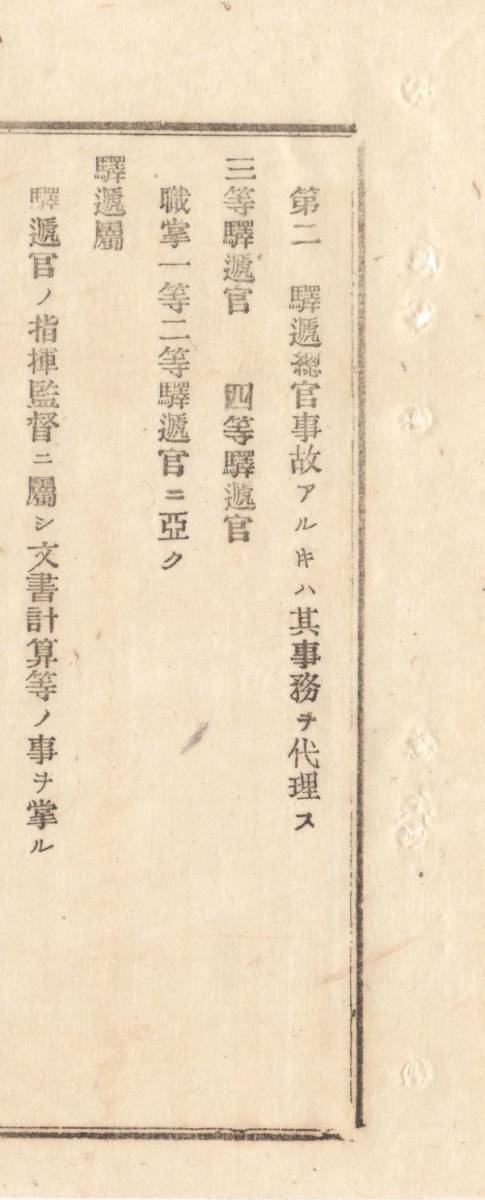 第二　驛遞總官事故アルキハ其事務ヲ代理ス
三等驛遞官　四等驛遞官
職掌一等二等驛遞官ニ亞ク
驛遞屬
驛遞官ノ指揮監督ニ屬シ文書計算等ノ事ヲ掌ル